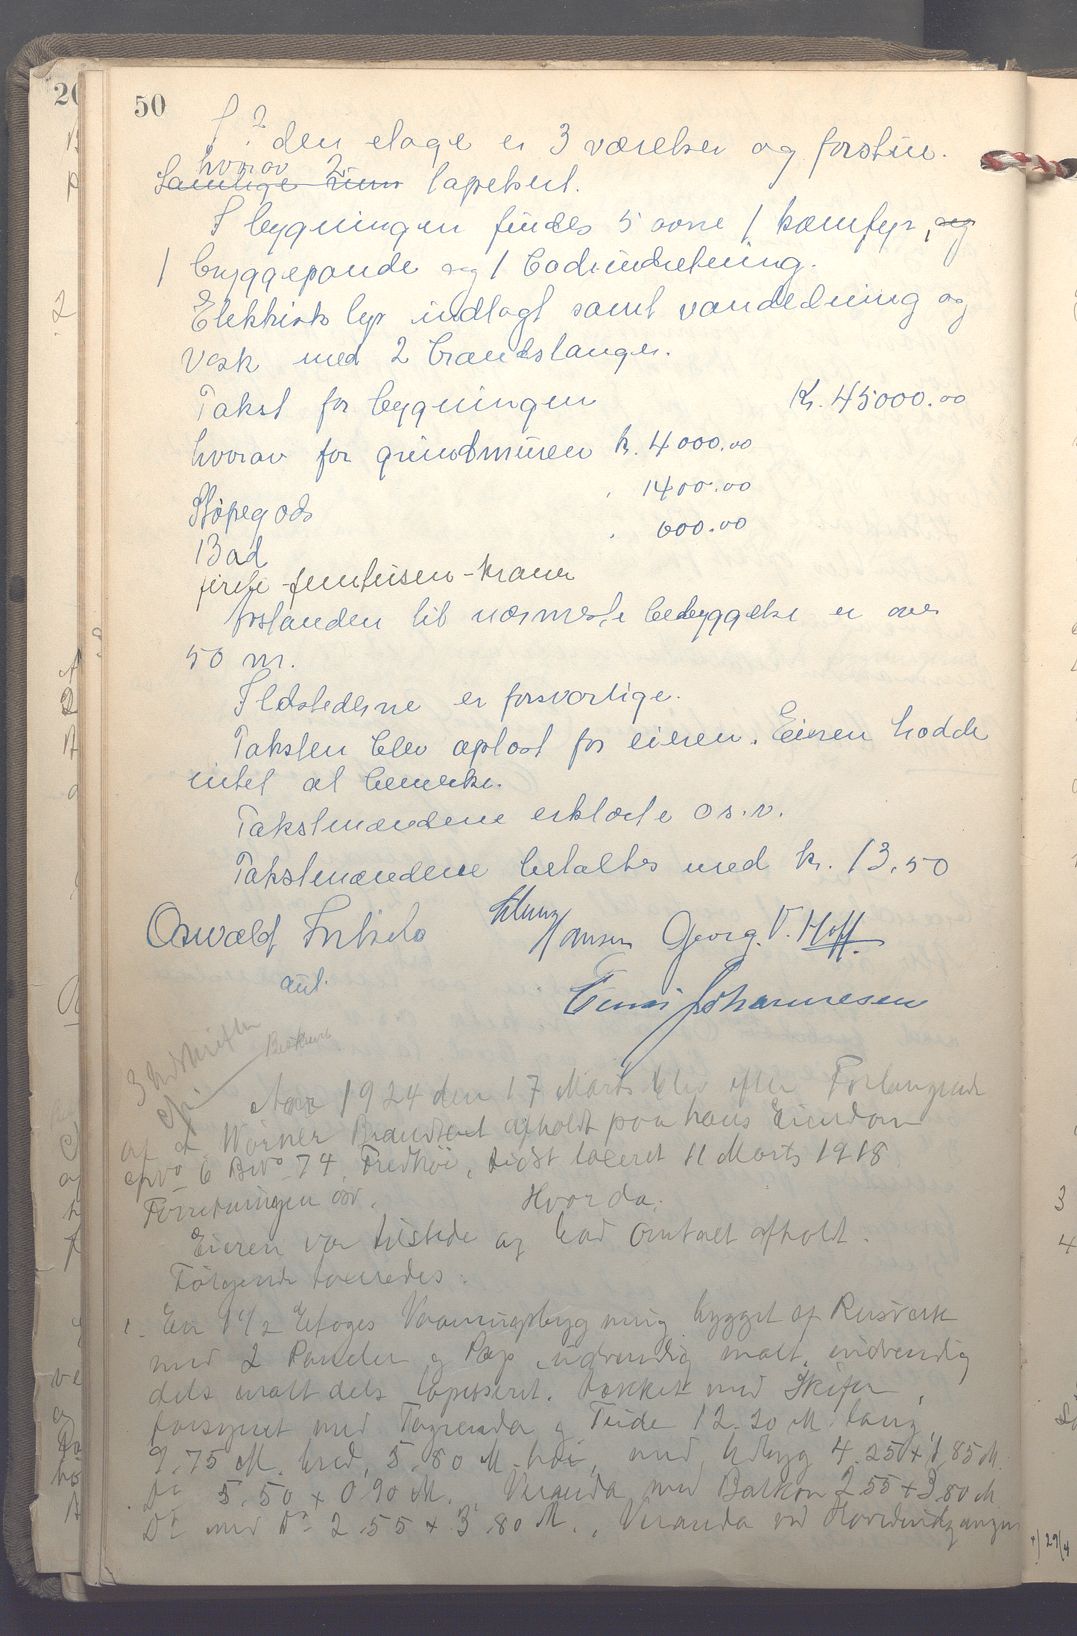 50
I 2den etage er 3 værelser og forstue.
hvorav 2
Samtlige rum tapetsert.
I bygningen findes 5 ovne 1 komfyr, og
1 bryggepande og 1 badeindretning.
Elektrisk lys indlagt samt vandledning og
vask med 2 brandslanger.
Takst for bygningen Kr. 45000.00
hvorav for grundmuren kr. 4000.00
Støpegods " 1400.00
Bad " 600.00
Avstanden til nærmeste bebyggelse er over
50 m.
Ildstederne er forsvarlige.
Taksten blev oplæst for eieren. Eieren hadde
intet at bemerke.
Takstmændene erklærte o.s.v.
Takstmændene betaltes med kr. 13.50
Oswald Hansen Georg. V. Hoff
aut.
Johannesen
3 Utskrifter
Aar 1924 den 17 Marts blev efter Forlangende
af Werner Brandtext afholdt paa hans Eiendom
6 BNo 74, Fredhøi, sidst taxeret 11 Marts 1918
Forretningen osv. Hvorda:
Eieren var tilstede og bad Omtaxt afholdt.
Følgende taxeredes:
1. En 1 1/2 Etages Vaaningsbygning bygget af Reisverk
med 2 Paneler og Pap, udvendig malt, indvendig
dels malt dels tapetseret. Tækket med Skifer,
forsynet med Tagrenda og Teide 12.20 M. lang
9.75 M. bred, 5.80 M. høi, med Udbyg 4.25 x 1,85 M.
Do 5.50 x 0.90 M. Veranda med Balkon 2.55 x 3.80 M.
Do med Do 2.55 x 3.80 M., Veranda ved Hovedindgangen